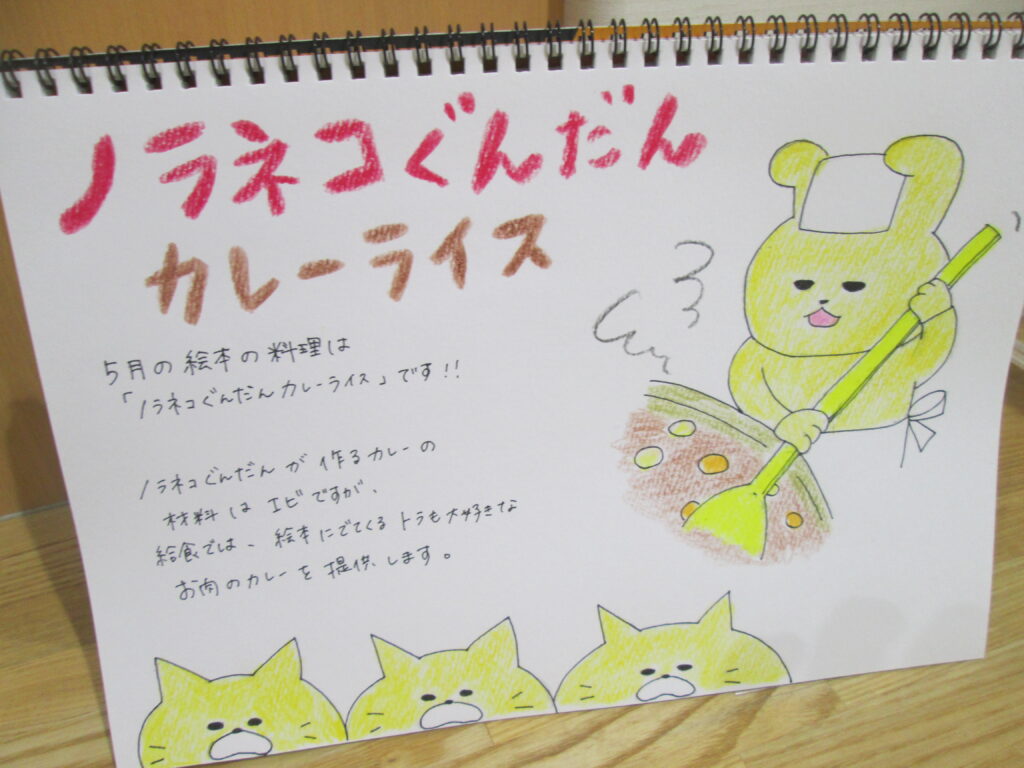 ノラネコぐんだん
カレーライス
5月の絵本の料理は
「ノラネコぐんだんカレーライス」です!!
ノラネコぐんだんが作るカレーの
材料はエビですが、
給食では、絵本にでてくるトラも大好きな
お肉のカレーを提供します。